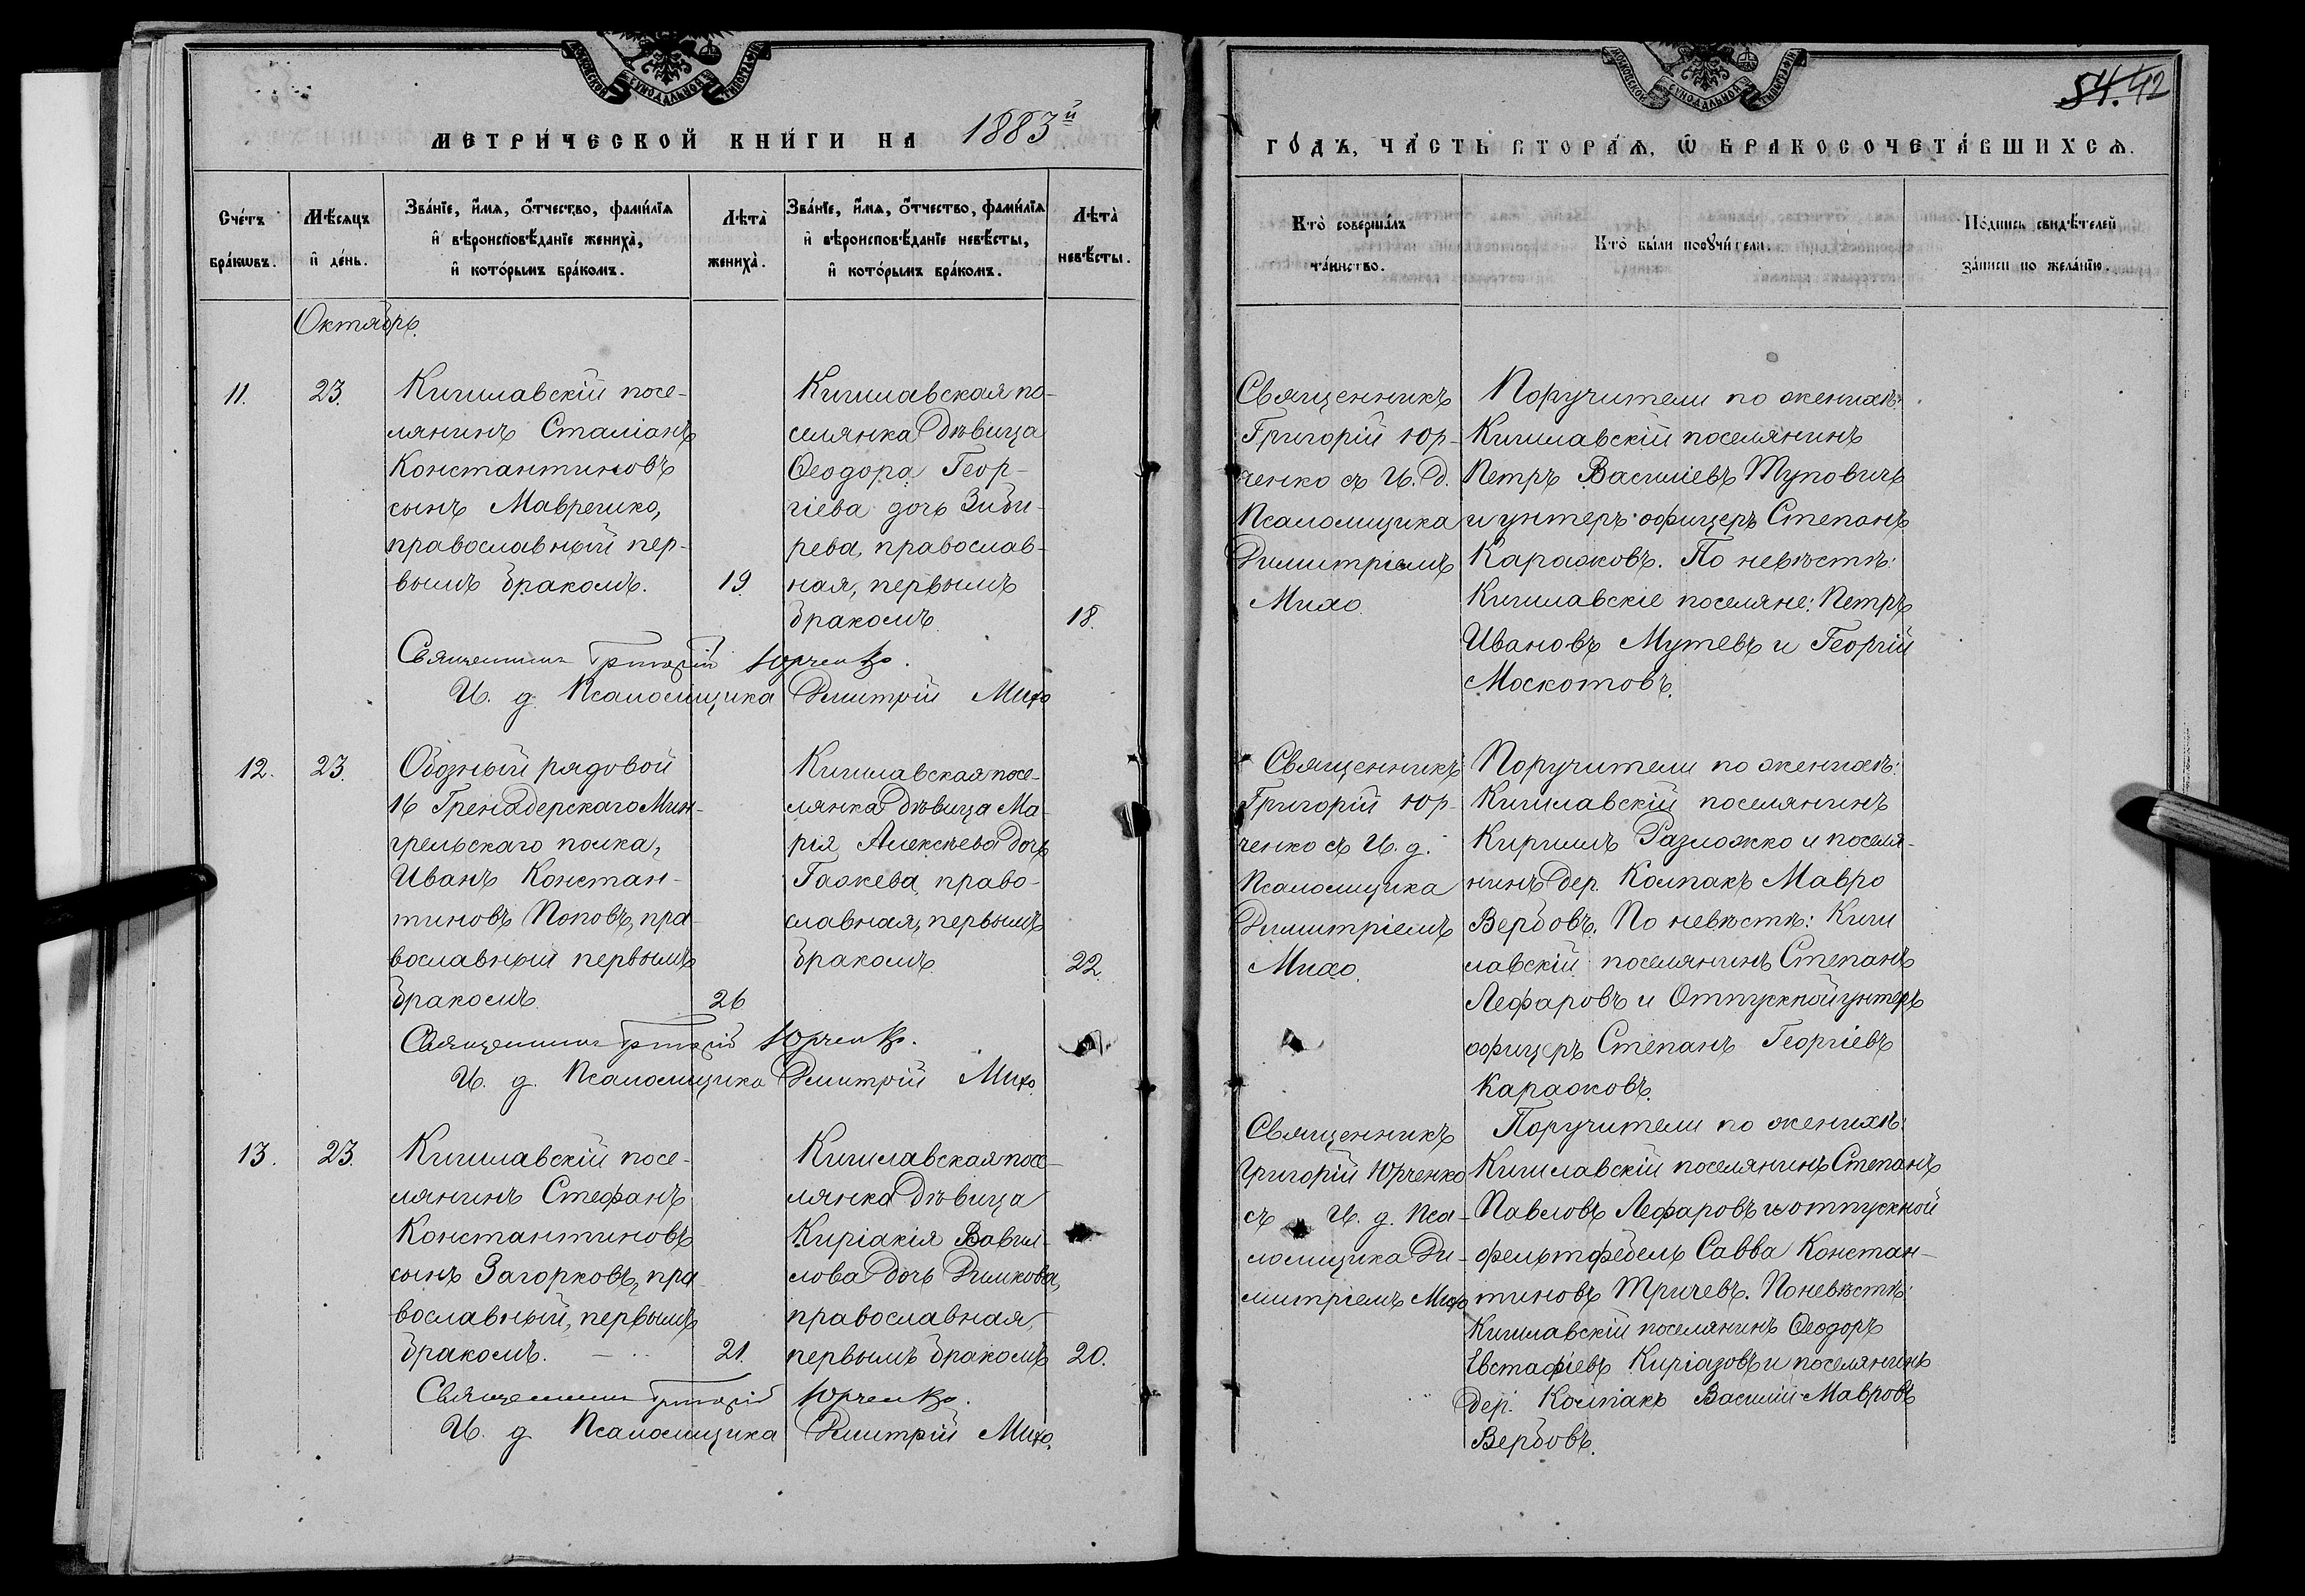 МОСКОВСКОЙ СѴНОДАЛЬНОЙ ТИПОГРАФІИ
МЕТРИ́ЧЕСКОЙ КНИ́ГИ НА 1883й
Сче́тъ бра́кѡвъ.
Мѣ́сяцъ и҆ де́нь.
Зва́нїе, и҆́мя, ѻ҆́тчество, фами́лїя
и҆ вѣроисповѣ́данїе жениха̀,
и҆ кото́рымъ бра́комъ.
Лѣта̀ жениха̀.
Зва́нїе, и҆́мя, ѻ҆́тчество, фами́лїя
и҆ вѣроисповѣ́данїе невѣ́сты,
и҆ кото́рымъ бра́комъ.
Лѣта̀ невѣ́сты.
Октябрь.
11.
23.
Кишлавскій посе-
лянинъ Сталіанъ
Константиновъ
сынъ Маврешко,
православный пер-
вымъ бракомъ.
19.
Кишлавская по-
селянка Дѣвица
Ѳеодора Геор-
гіева дочь Зиби-
рева, православ-
ная, первымъ
бракомъ.
18.
Священникъ Григорій Юрченко.
И. д. Псаломщика Дмитрій Михо
12.
23.
Обозный рядовой
16 Гренадерскаго Мин-
грельскаго полка,
Иванъ Констан-
тиновъ Поповъ, пра-
вославный первымъ
бракомъ
26
Кишлавская посе-
лянка Дѣвица Ма-
рія Алексѣева дочь
Гажева, право-
славная, первымъ
бракомъ
22.
Священникъ Григорій Юрченко.
И. д. Псаломщика Дмитрій Михо.
13.
23.
Кишлавскій посе-
лянинъ Стефанъ
Константиновъ
сынъ Загорковъ, пра-
вославный, первымъ
бракомъ.
21.
Кишлавская посе-
лянка Дѣвица
Киріакія Вавил-
лова Дочь Димкова,
православная,
первымъ бракомъ
20.
Священникъ Григорій Юрченко.
И. д. Псаломщика Дмитрій Михо.
МОСКОВСКОЙ СѴНОДАЛЬНОЙ ТИПОГРАФІИ
54. 42
ГО́ДЪ, ЧА́СТЬ ВТОРА́Ѧ, Ѡ҆ БРАКОСОЧЕТА́ВШИХСѦ.
Кто̀ соверша́лъ
та́инство.
Кто̀ бы́ли порꙋчи́тели.
По́дпись свидѣ́телей
за́писи по жела́нїю.
Священникъ
Григорій Юр-
ченко съ И. Д.
Псаломщика
Димитріемъ
Михо
Поручители по женихѣ:
Кишлавскій поселянинъ
Петръ Василіевъ Туповичъ
и унтеръ-офицеръ Степанъ
Каражовъ. По невѣстѣ:
Кишлавскіе поселяне: Петръ
Ивановъ Мутевъ и Георгій
Москотовъ.
Священникъ
Григорій Юр-
ченко съ И. д.
Псаломщика
Димитріемъ
Михо.
Поручители по женихѣ:
Кишлавскій поселянинъ
Кириллъ Разложко и поселя-
нинъ дер. Колпакъ Мавро
Вербовъ. По невѣстѣ: Киш
лавскій поселянинъ Степанъ
Лефаровъ и Отпускной унтеръ
офицеръ Степанъ Георгіевъ
Каражовъ.
Священникъ
Григорій Юрченко
съ И. д. Пса-
ломщика Ди-
митріемъ Михо
Поручители по женихѣ:
Кишлавскій поселянинъ Степанъ
Павловъ Лефаровъ и отпускной
фельтфебель Савва Констан-
тиновъ Тричевъ. По невѣстѣ:
Кишлавскій поселянинъ Ѳеодоръ
Евстафіевъ Киріазовъ и поселянинъ
дер. Колпакъ Василій Мавровъ
Вербовъ.